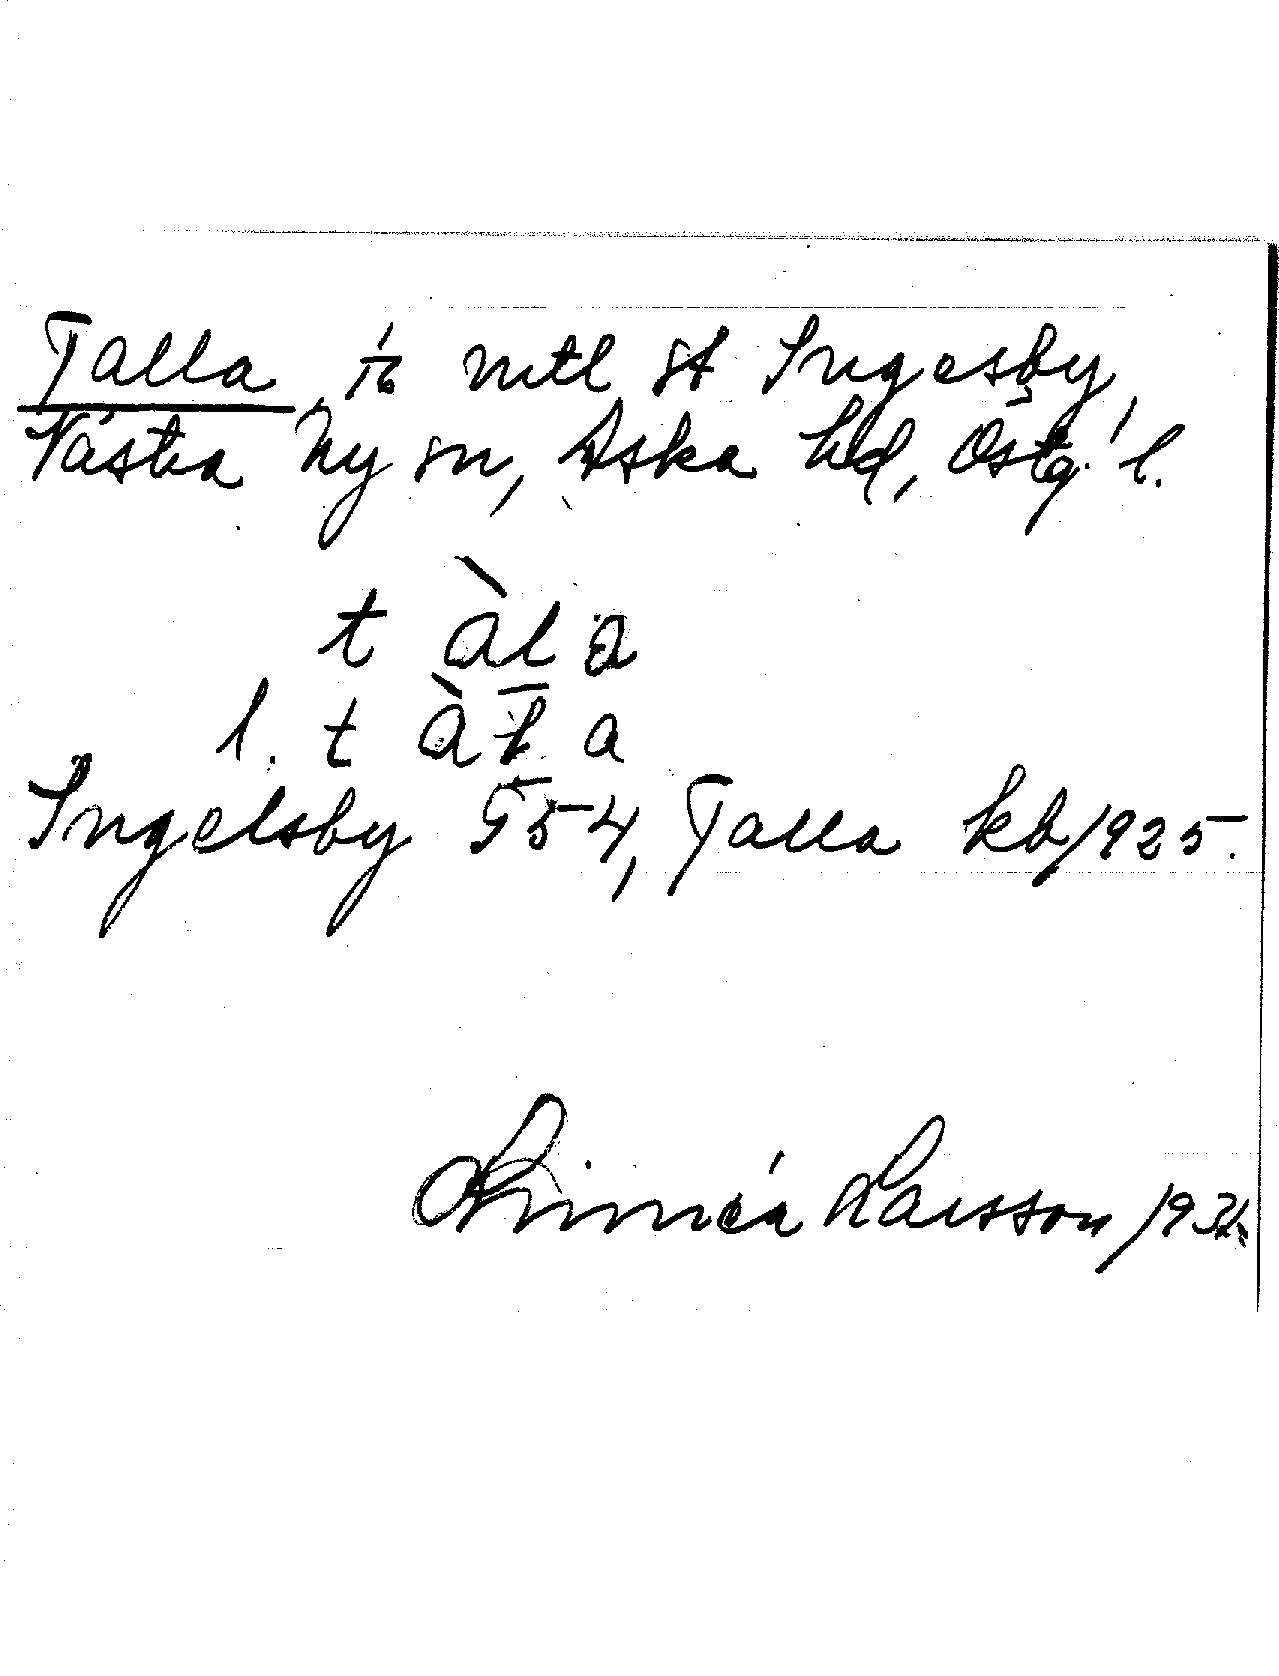 Talla, 1/16 mtl st Ingesby,
Västra Ny sn, Aska hd, Östg. l.
t àl a
l. t àl̄ a
Ingelsby G54, Talla kb 1925.
Linnéa Larsson 193